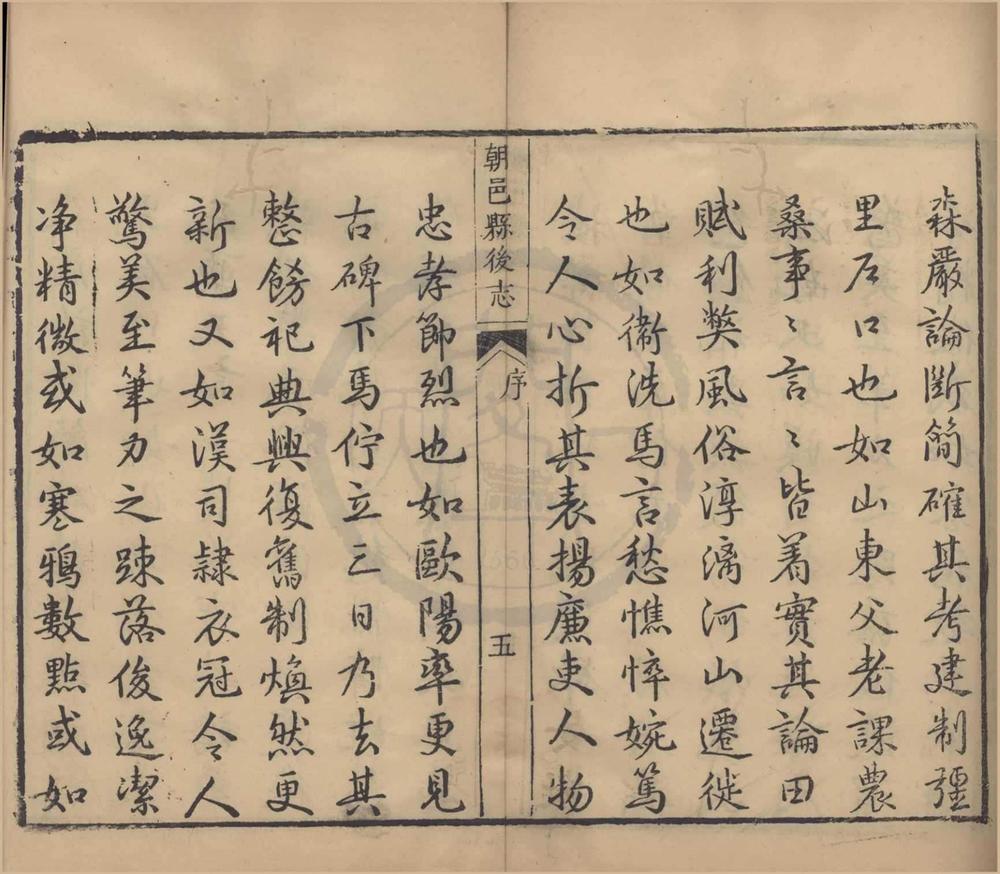 森嚴論斷簡確其考建制疆
里石口也如山東父老課農
桑事〻言〻皆着實其論田
賦利獘風俗淳漓河山遷徙
也如衞洗馬言愁憔悴婉篤
令人心折其表揚廉吏人物
朝邑縣後志
序
五
忠孝節烈也如歐陽率更見
古碑下馬佇立三日乃去其
整飭祀典興復舊制煥然更
新也又如漢司隷衣冠令人
驚美至筆力之踈落俊逸潔
净精微或如寒鴉數點或如